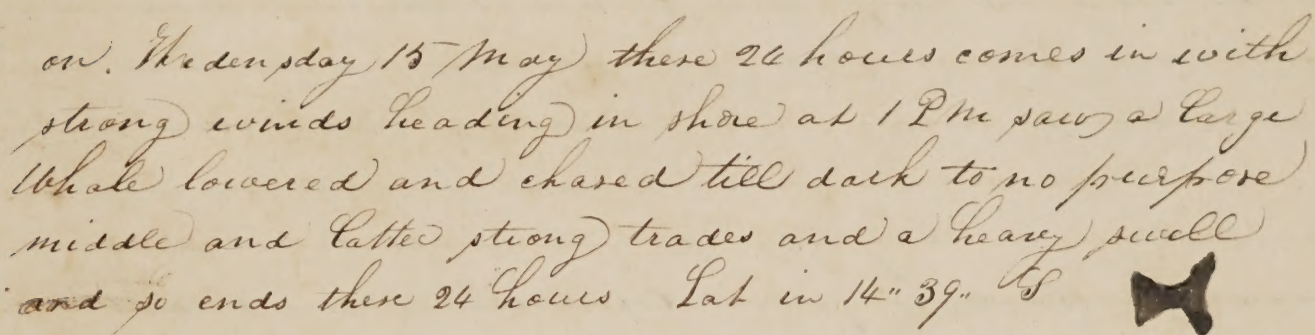 on. Wedensday 15 May these 24 hours comes in with
strong winds heading in shore at 1 PM saw a large
Whale lowered and chased till dark to no purpose
middle and latter strong trades and a heavy swell
and so ends these 24 hours Lat in 14" 39" S